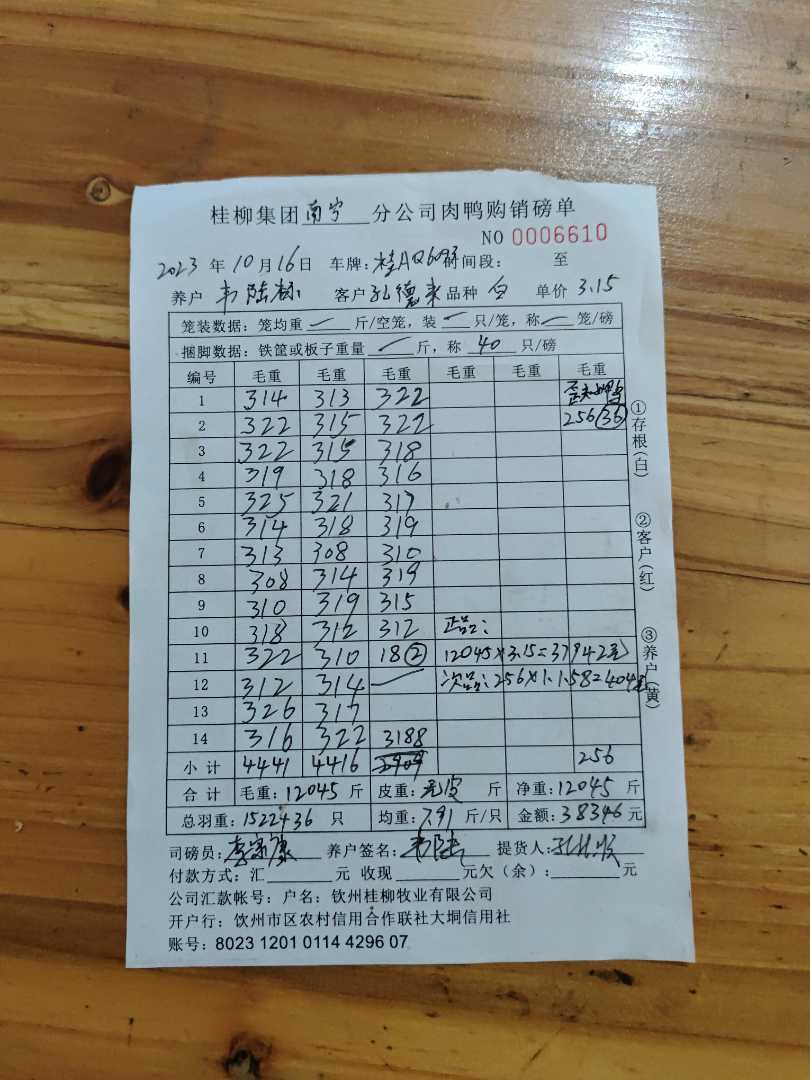 桂柳集团南宁分公司肉鸭购销磅单
NO 0006610
2023 年 10 月 16 日 车牌: 桂AQ6093 时间段: 至
养户 韦陆标 客户 孔德来 品种 白 单价 3.15
笼装数据: 笼均重 — 斤/空笼, 装 — 只/笼, 称 — 笼/磅
捆脚数据: 铁筐或板子重量 — 斤, 称 40 只/磅
编号 毛重 毛重 毛重 毛重 毛重 毛重
1 314 313 322
2 322 315 322 256 (36)
3 322 315 318
4 319 318 316
5 325 321 317
6 314 318 319
7 313 308 310
8 308 314 319
9 310 319 315
10 318 312 312 正品:
11 322 310 18 (2) 12045×3.15=37942元
12 312 314 — 次品: 256×1.58=404元
13 326 317
14 316 322 3188
小计 4441 4416 256
合计 毛重: 12045 斤 皮重: 毛皮 斤 净重: 12045 斤
总羽重: 1522+36 只 均重: 7.91 斤/只 金额: 38346 元
司磅员: 养户签名: 提货人:
付款方式: 汇 元 收现 元欠(余): 元
公司汇款帐号: 户名: 钦州桂柳牧业有限公司
开户行: 钦州市区农村信用合作联社大垌信用社
账号: 8023 1201 0114 4296 07
①存根(白)
②客户(红)
③养户(黄)